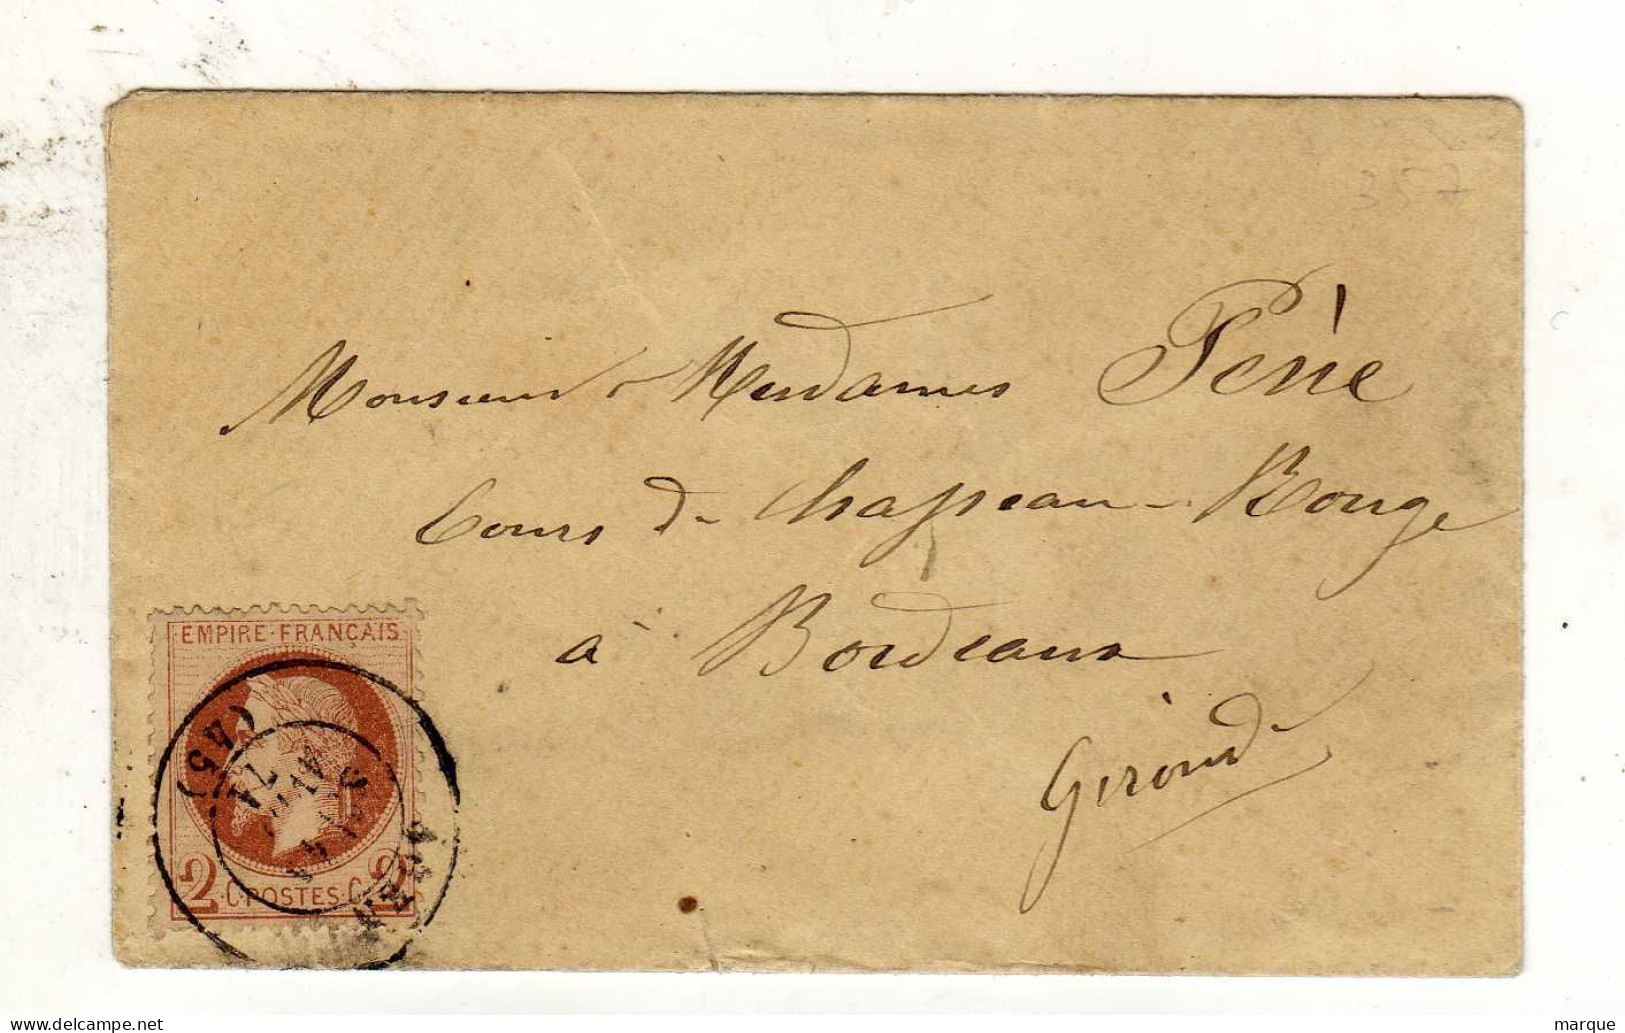 357
Monsieur & Mesdames Pène
Cours de Chapeau-Rouge
à Bordeaux
Gironde
EMPIRE FRANCAIS
(45)
2 C POSTES C 2
marque